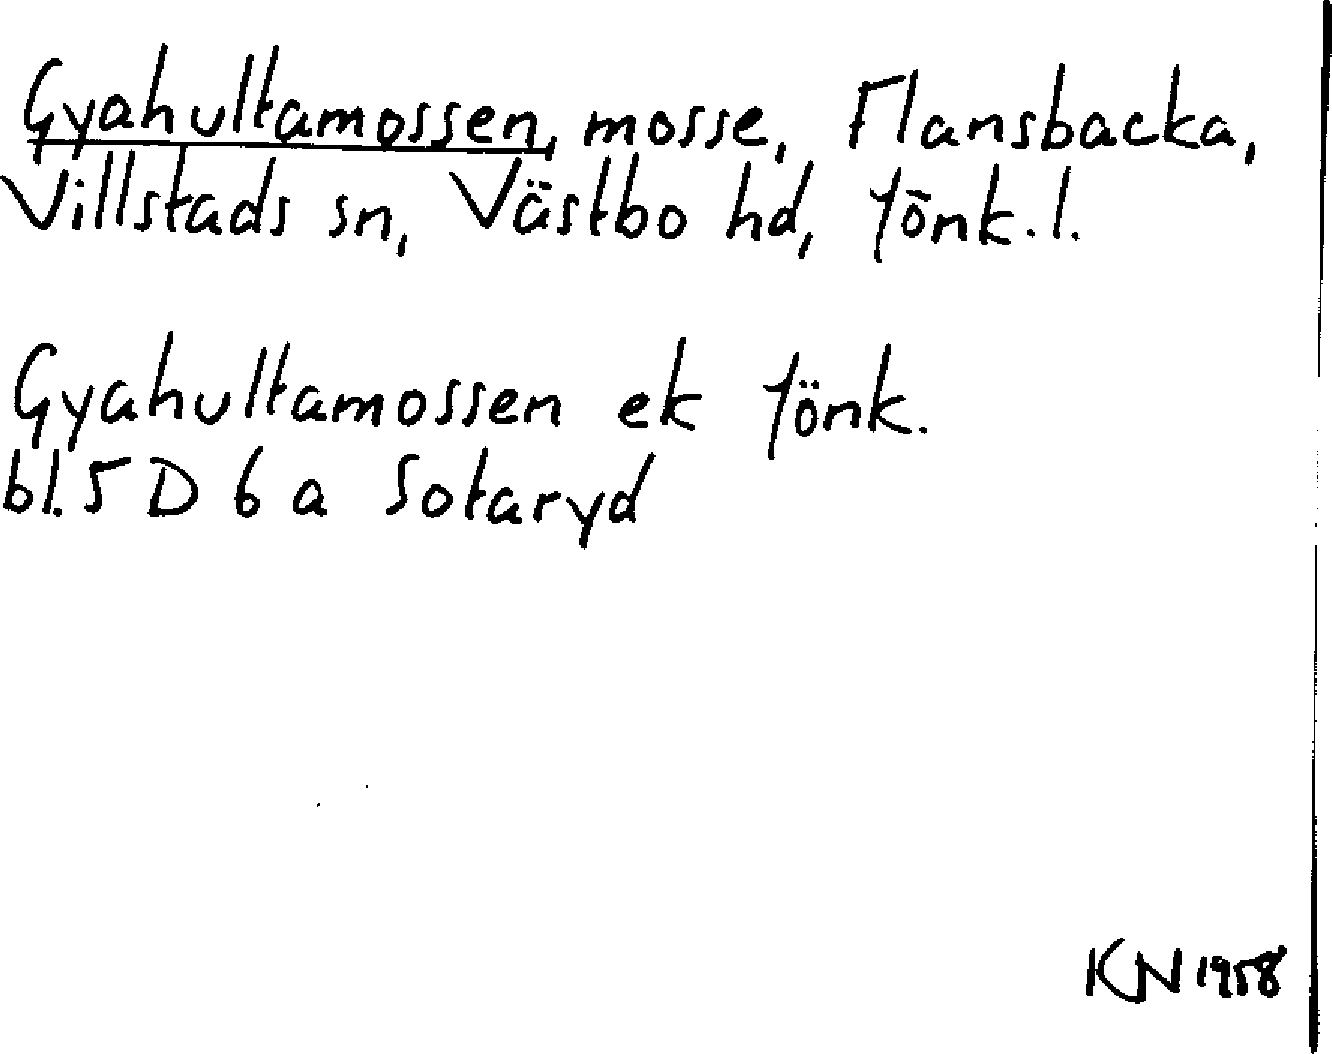 Gyahultamossen, mosse, Mansbacka,
Villstads sn, Västbo hd, Jönk. l.
Gyahultamossen ek Jönk.
bl. 5 D 6 a Sotaryd
KN 1958